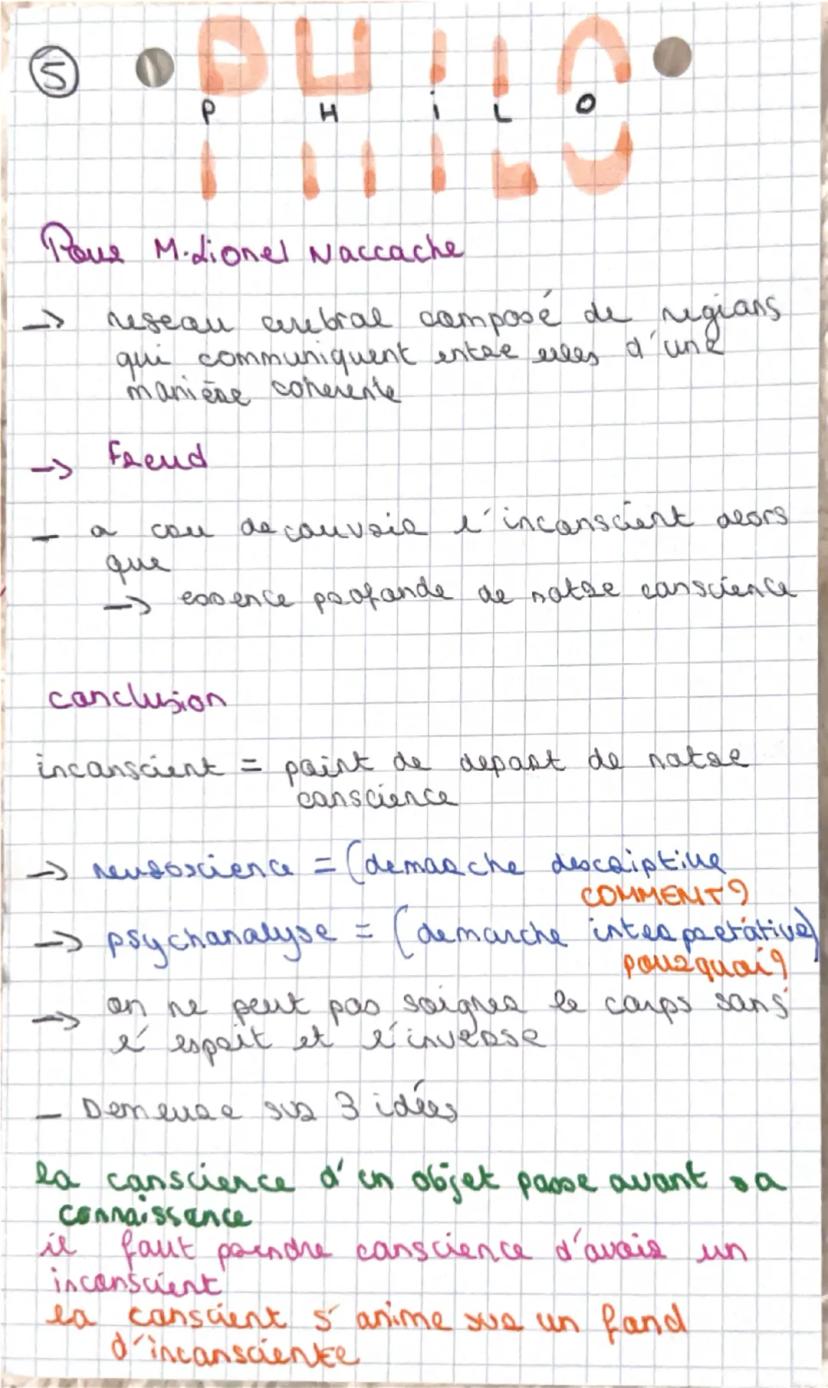 5
PHILO
P H i L O
Pour M. Lionel Naccache
-> reseau cerebral composé de regions
qui communiquent entre elles d'une
manière coherente
-> Freud
- a cru decouvrir l'inconscient alors
que
-> essence profonde de notre conscience
conclusion
inconscient = point de depart de notre
conscience
-> neuroscience = (demarche descriptive
COMMENT?
-> psychanalyse = (demarche interpretative)
pourquoi?
-> on ne peut pas soigner le corps sans
l'esprit et l'inverse
- Demeure sur 3 idées
la conscience d'un objet passe avant sa
connaissance
il faut prendre conscience d'avoir un
inconscient
la conscient s'anime sur un fond
d'insconsciente